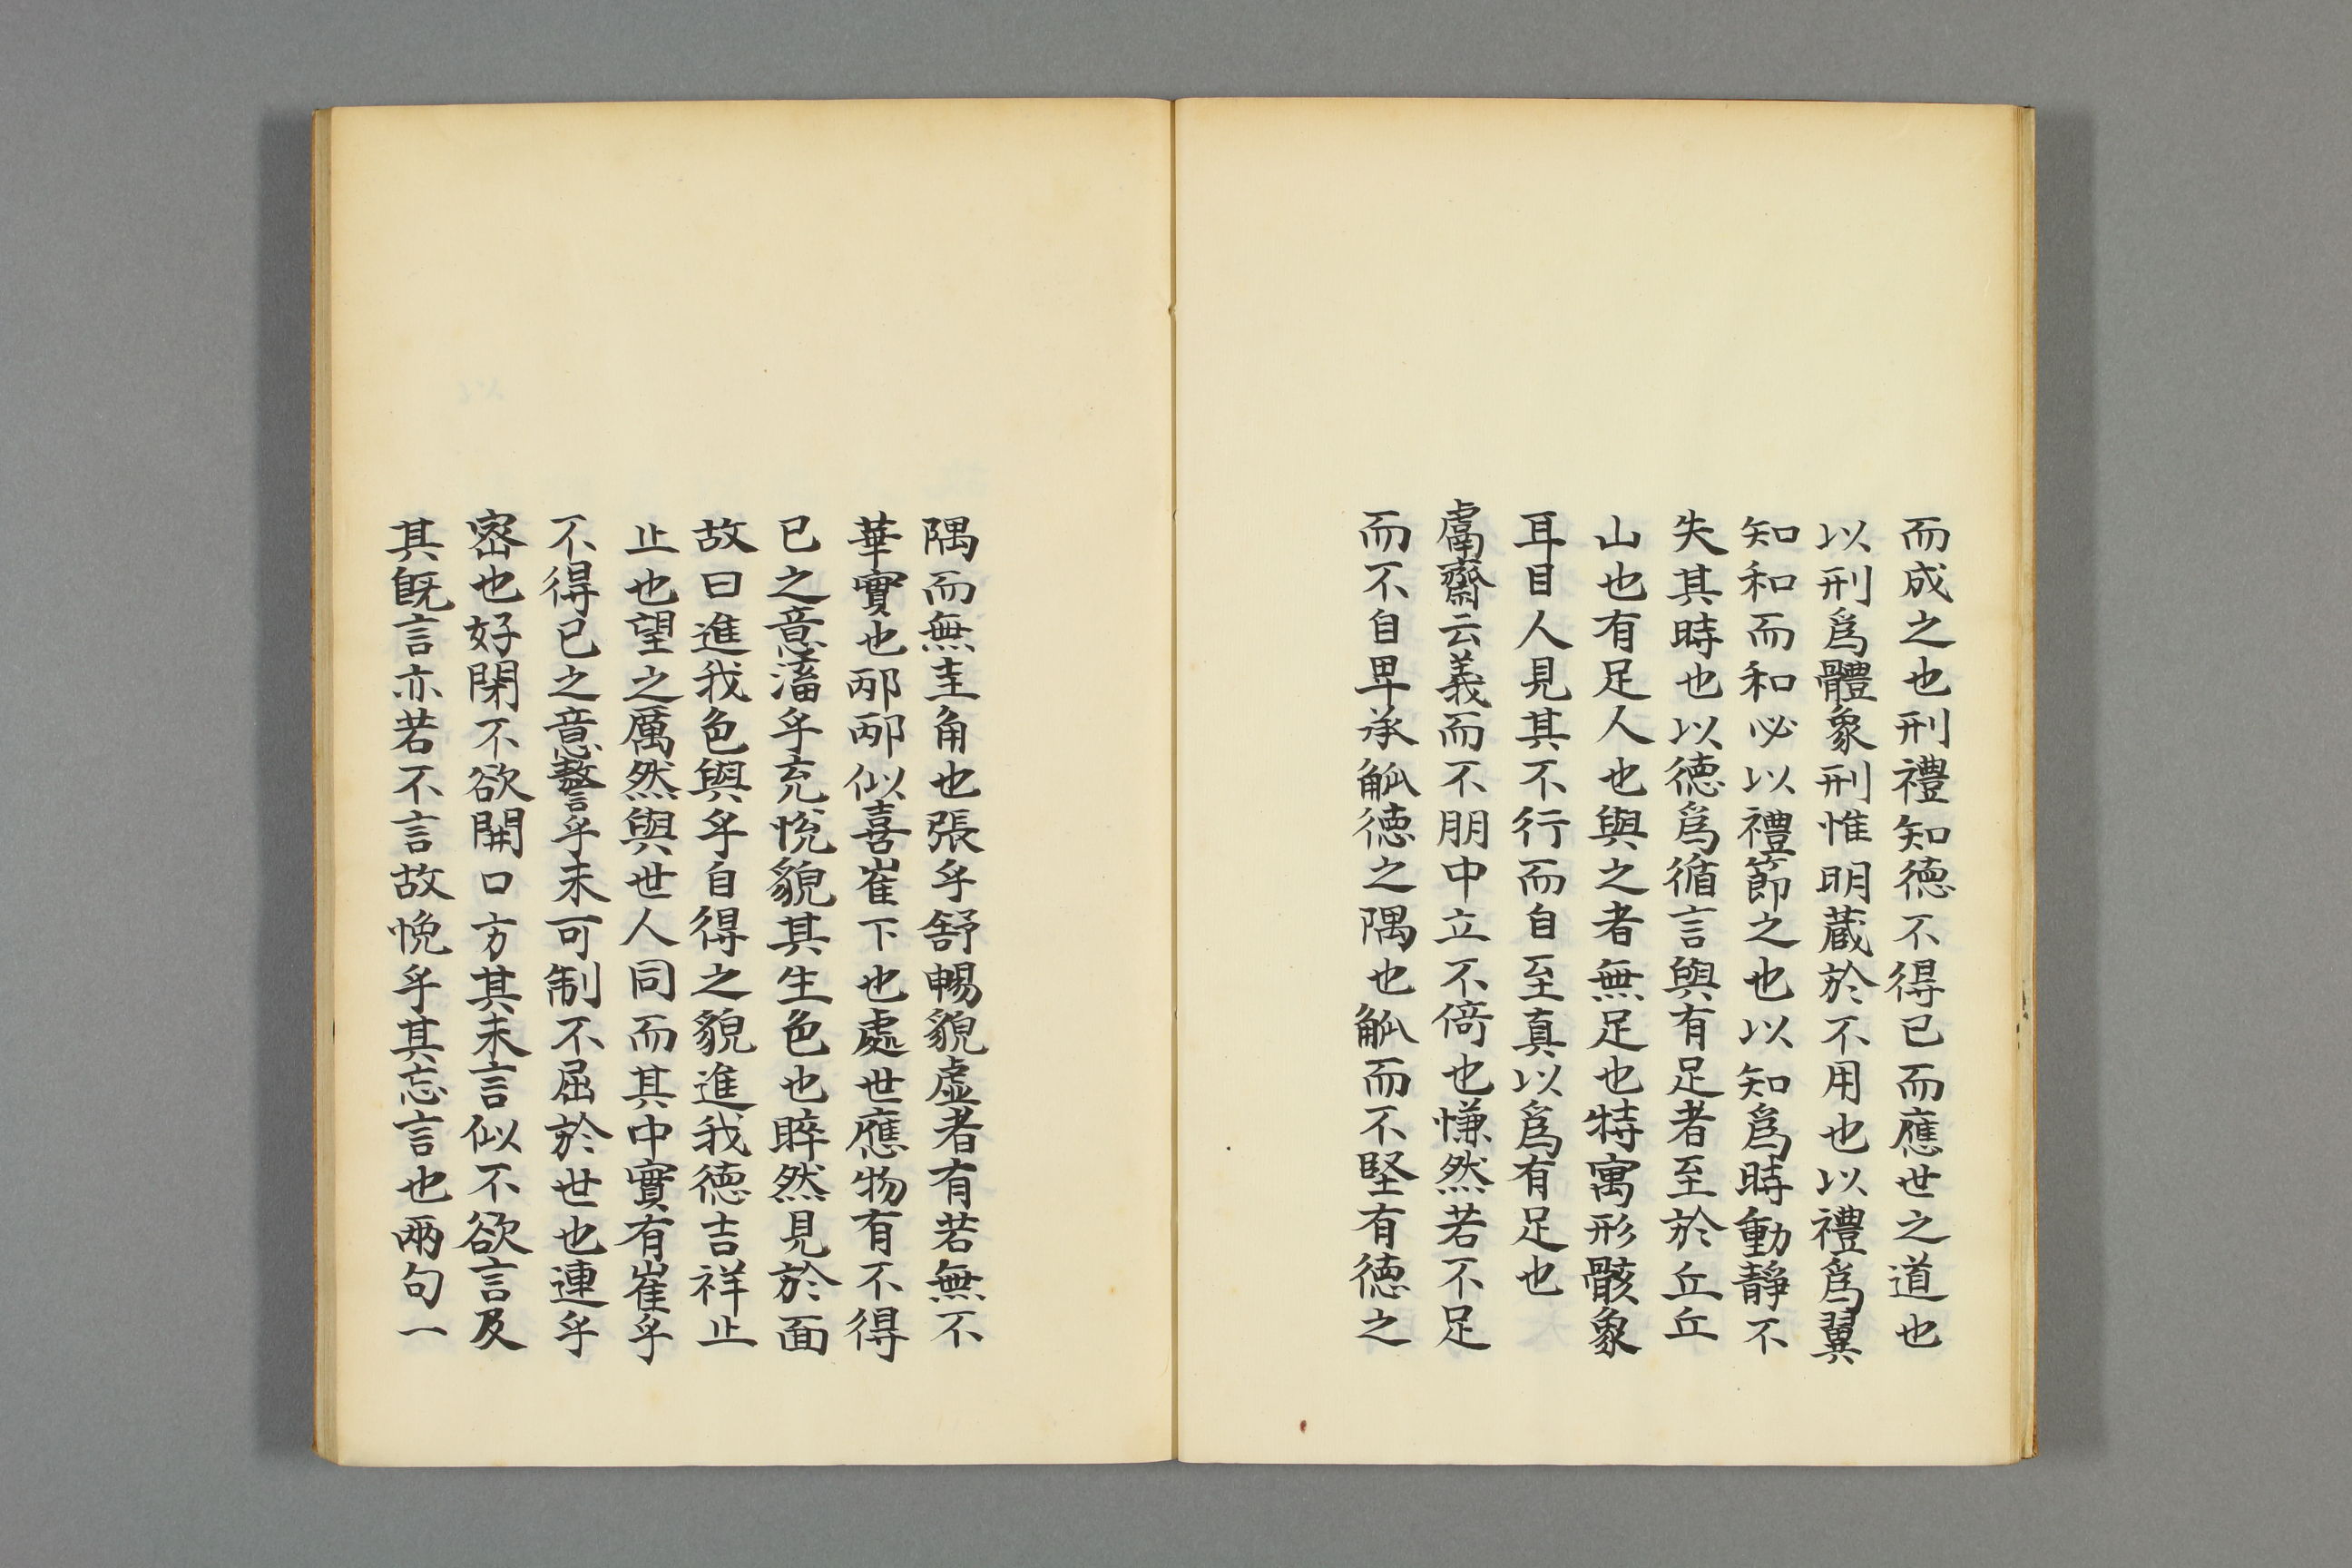 而成之也刑禮知德不得已而應世之道也
以刑爲體象刑惟明蔵於不用也以禮爲翼
知和而和必以禮節之也以知爲時動靜不
失其時也以德爲循言與有足者至於丘丘
山也有足人也與之者無足也特寓形骸象
耳目人見其不行而自至真以爲有足也
鬳齋云義而不朋中立不倚也慊然若不足
而不自卑承觚德之隅也觚而不堅有德之
隅而無圭角也張乎舒暢貌虛者有若無不
華實也邴邴似喜崔下也處世應物有不得
已之意滀乎充悅貌其生色也睟然見於面
故曰進我色與乎自得之貌進我德吉祥止
止也望之厲然與世人同而其中實有崔乎
不得已之意謷乎未可制不屈於世也連乎
密也好閑不欲開口方其未言似不欲言及
其既言亦若不言故悗乎其忘言也兩句一